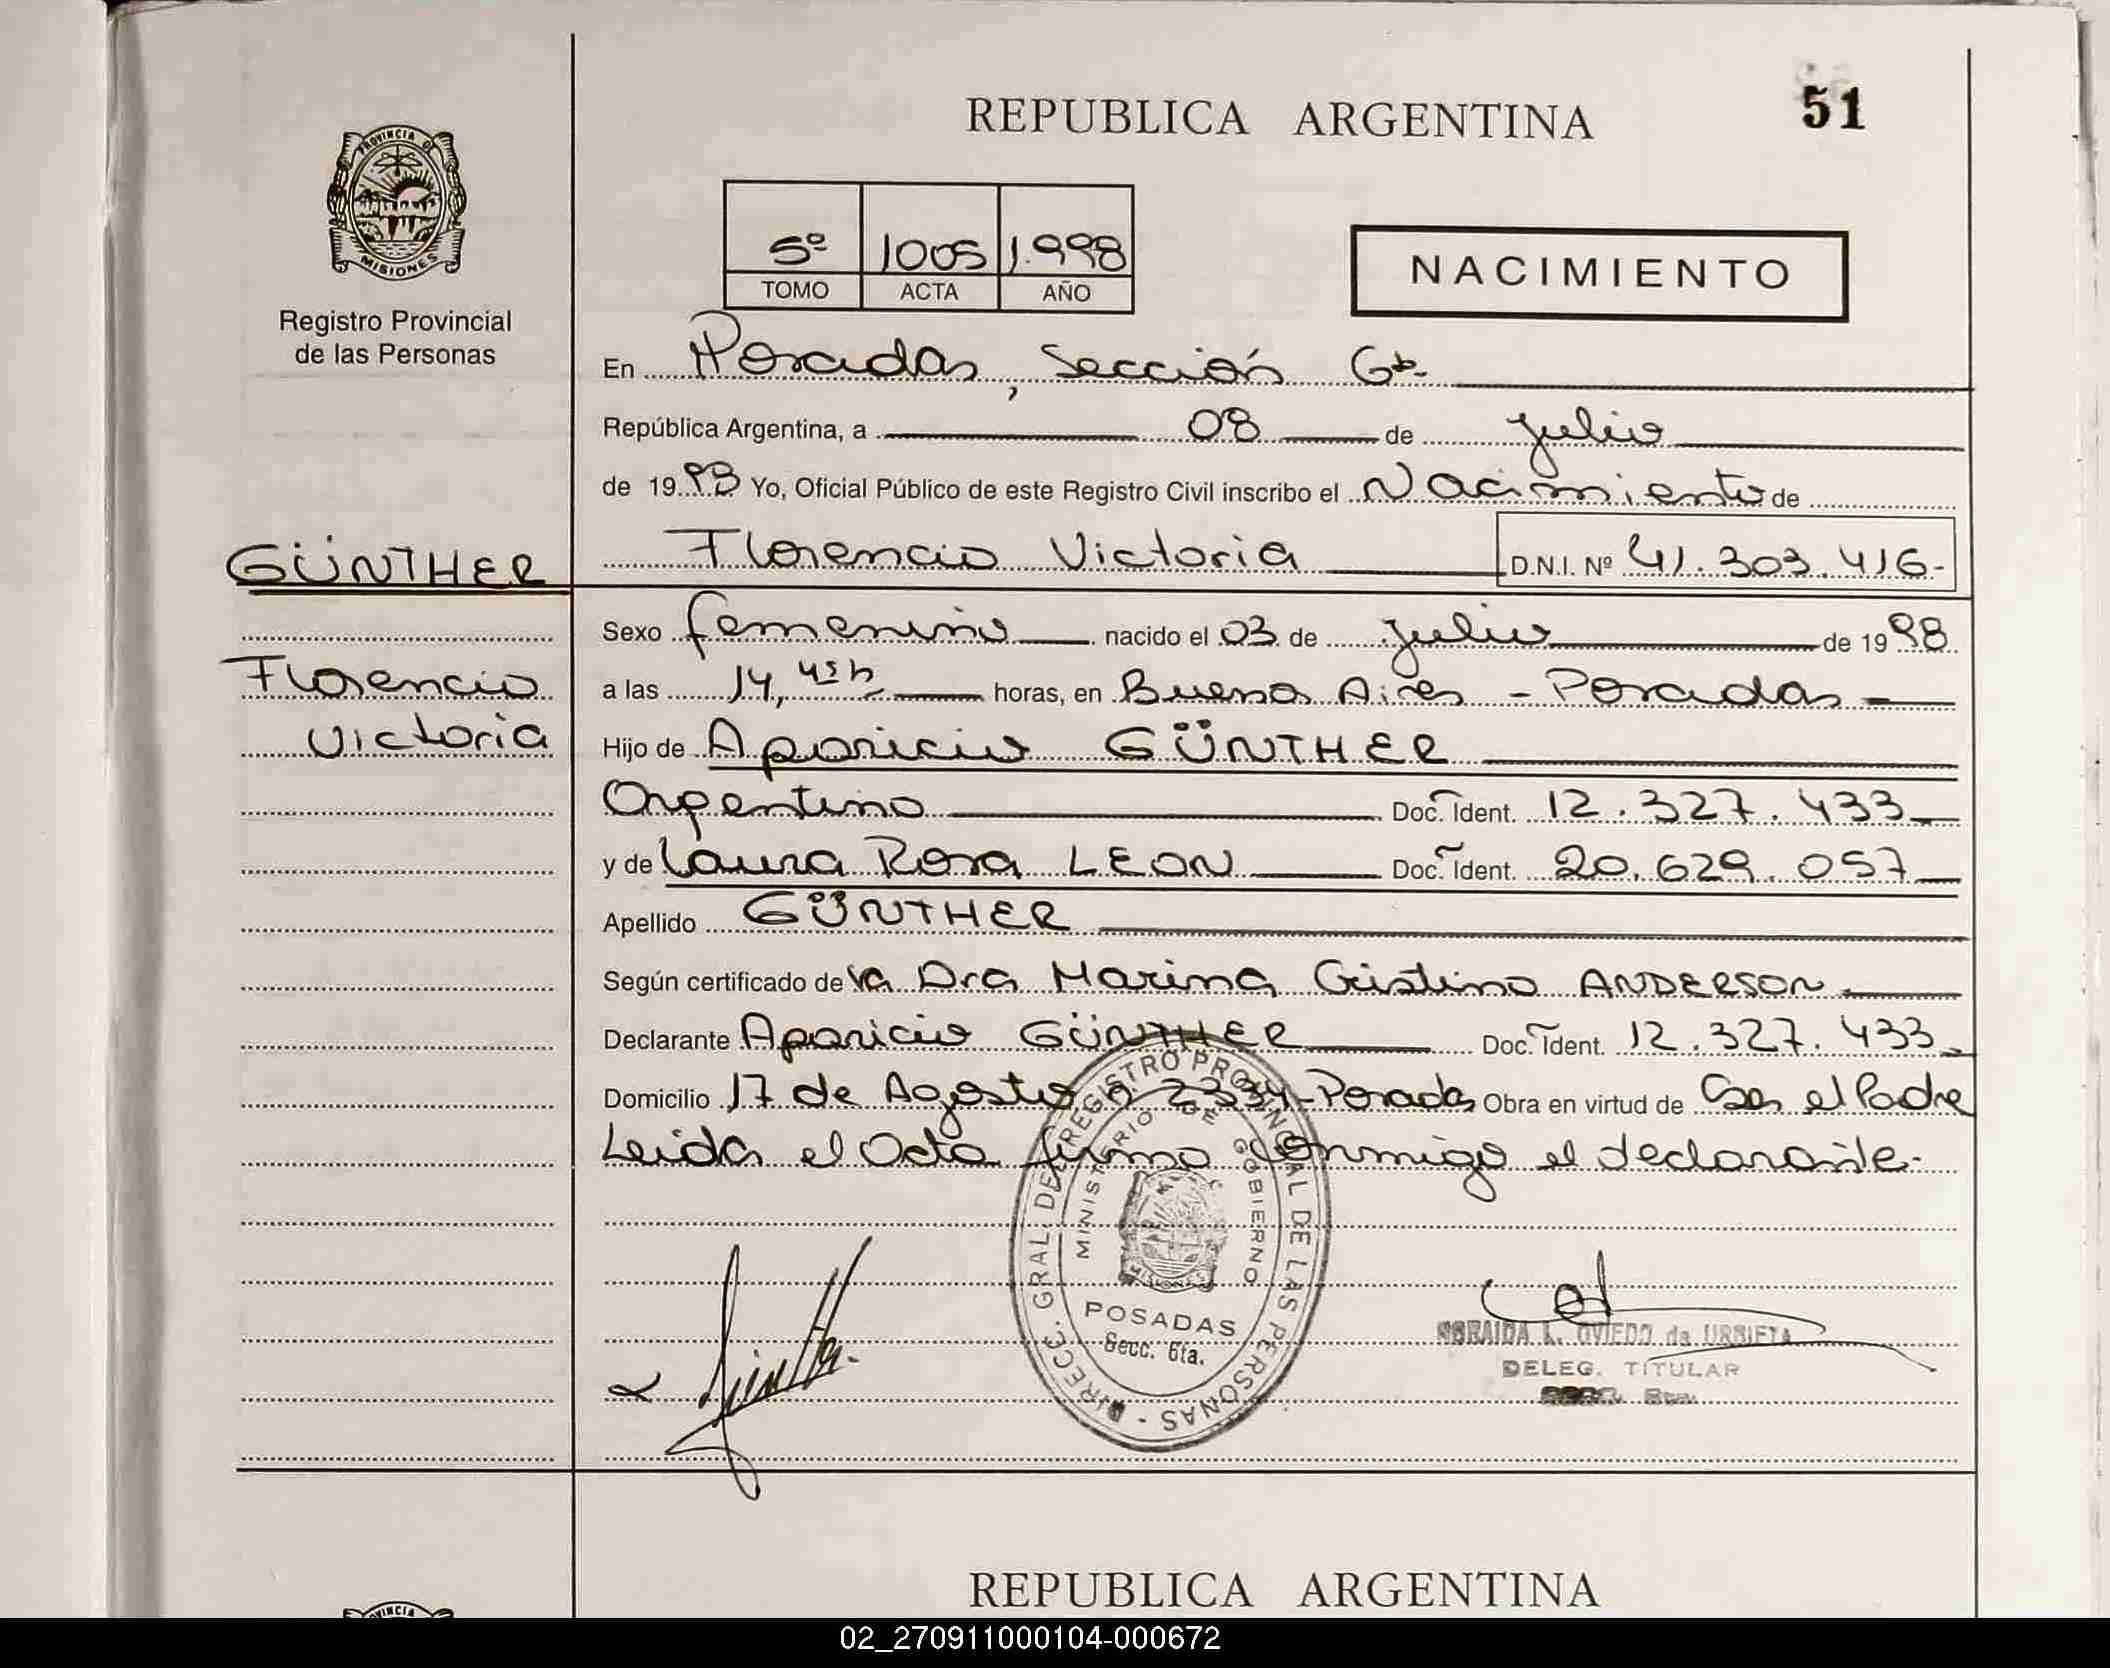 REPUBLICA ARGENTINA
51
PROVINCIA DE
MISIONES
Registro Provincial
de las Personas
5º 1005 1.998
TOMO ACTA AÑO
NACIMIENTO
En Posadas, Sección 6ta.
República Argentina, a 08 de julio
de 1998 Yo, Oficial Público de este Registro Civil inscribo el Nacimiento de
GÜNTHER
Florencia Victoria D.N.I. Nº 41.303.416-
Sexo femenino nacido el 03 de julio de 1998
Florencia
a las 14,45h horas, en Buenos Aires - Posadas
Victoria
Hijo de Aparicio GÜNTHER
Argentino Doc. Ident. 12.327.433
y de Laura Rosa LEON Doc. Ident. 20.629.057
Apellido GÜNTHER
Según certificado de la Dra Marina Cristina ANDERSON
Declarante Aparicio GÜNTHER Doc. Ident. 12.327.433
Domicilio 17 de Agosto 2334-Posadas Obra en virtud de Ser el Padre
Leida el Acta firma conmigo el declarante.
DIRECC. GRAL. DEL REGISTRO PROVINCIAL DE LAS PERSONAS -
MINISTERIO DE GOBIERNO
MISIONES
POSADAS
Secc. 6ta.
L. OVIEDO de URBIETA
DELEG. TITULAR
REPUBLICA ARGENTINA
02_270911000104-000672